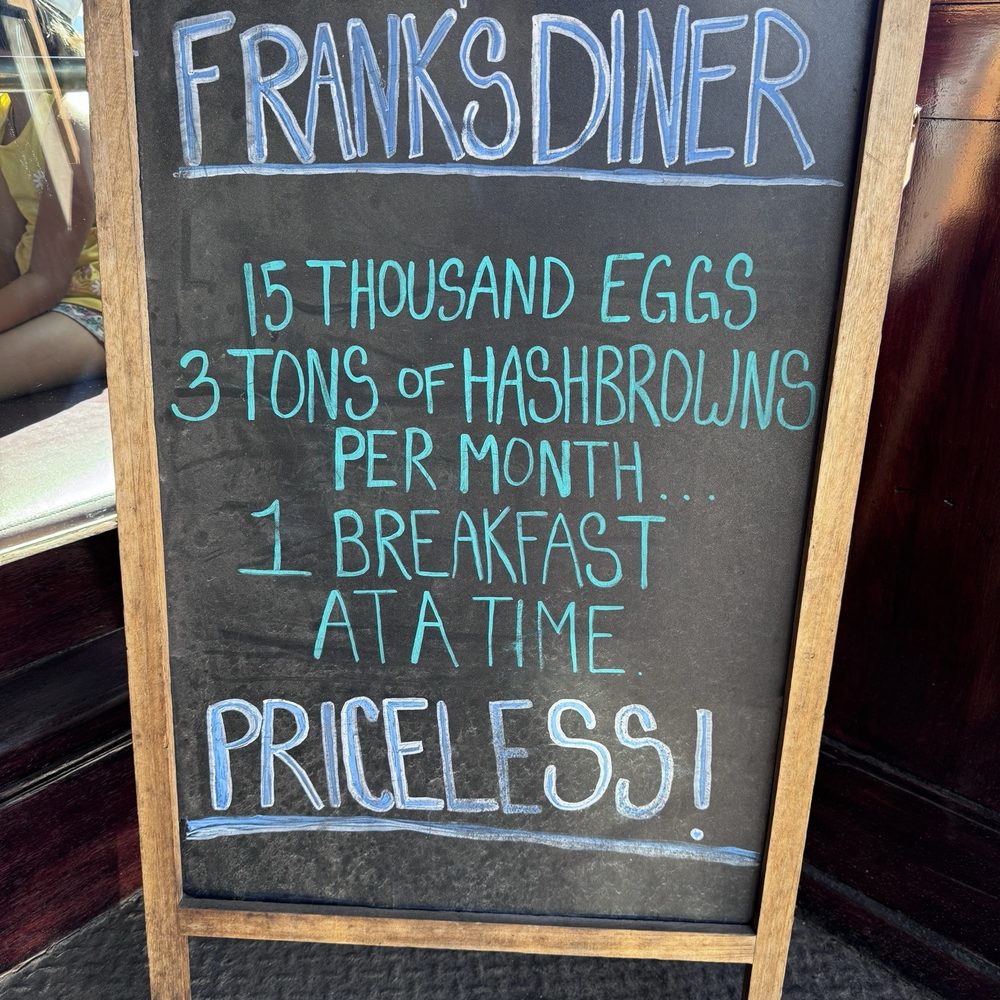 FRANK'S DINER
15 THOUSAND EGGS
3 TONS OF HASHBROWNS
PER MONTH...
1 BREAKFAST
AT A TIME.
PRICELESS!